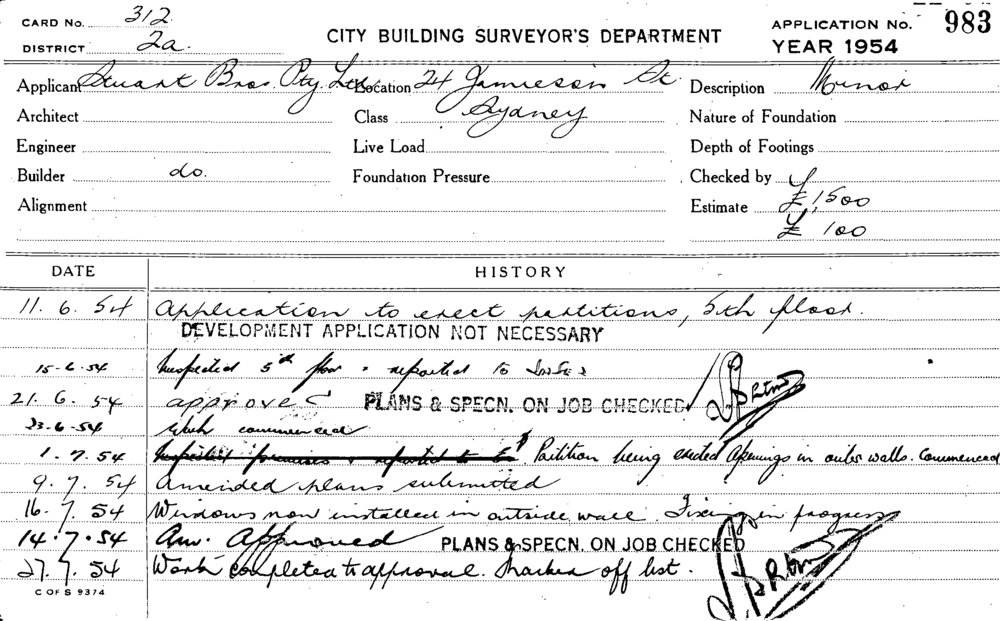 CARD No. 312
DISTRICT 2a
CITY BUILDING SURVEYOR'S DEPARTMENT
APPLICATION No. 983
YEAR 1954
Applicant Stuart Bros. Pty. Ltd. Location 24 Jamieson St. Description Minor
Architect Class Sydney Nature of Foundation
Engineer Live Load Depth of Footings
Builder do. Foundation Pressure Checked by
Alignment Estimate £1,500
£ 100
DATE HISTORY
11. 6. 54 Application to erect partitions, 5th floor.
DEVELOPMENT APPLICATION NOT NECESSARY
15-6-54 Inspected 5th floor & reported to
21. 6. 54 approved PLANS & SPECN. ON JOB CHECKED
23-6-54 Work commenced
1. 7. 54 Inspected premises & reported to Partition being erected Openings in outer walls. Commenced
9. 7. 54 Amended plans submitted
16. 7. 54 Windows now installed in outside wall. Fixing in progress
14. 7. 54 Am. Approved PLANS & SPECN. ON JOB CHECKED
27. 7. 54 Work completed to approval. Marked off list.
C OF S 9374